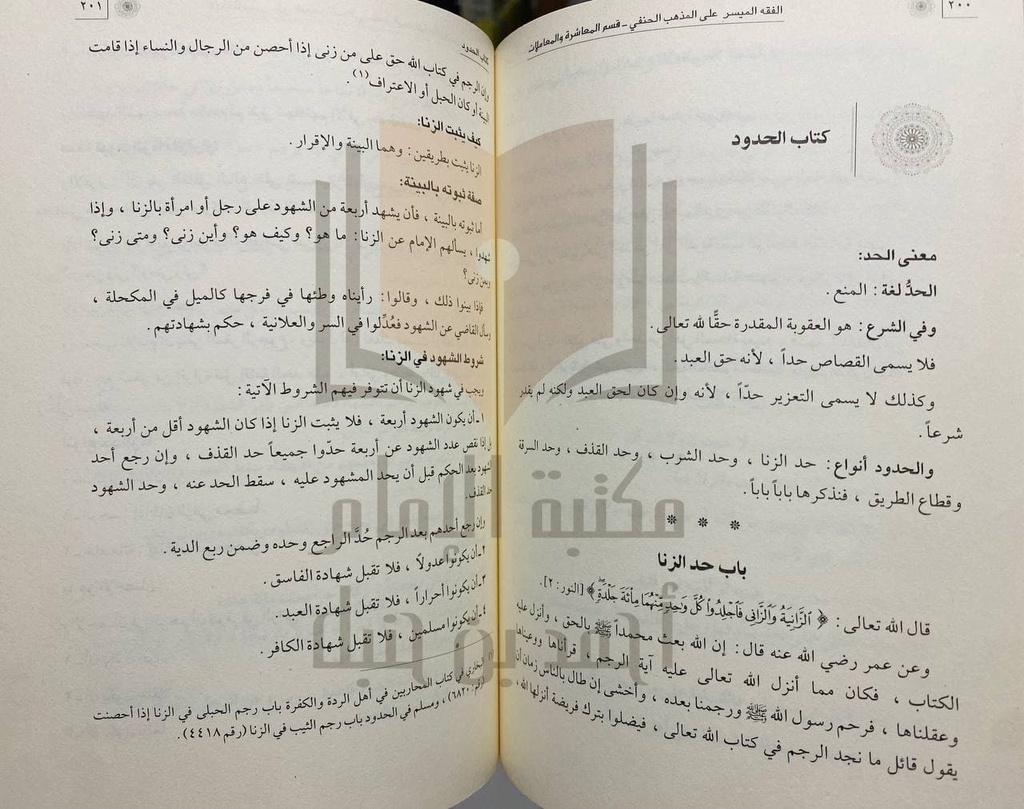 ٢٠٠
الفقه الميسر على المذهب الحنفي - قسم المعاشرة والمعاملات
كتاب الحدود
معنى الحد:
الحدُّ لغة : المنع .
وفي الشرع : هو العقوبة المقدرة حقًّا لله تعالى .
فلا يسمى القصاص حداً ، لأنه حق العبد .
وكذلك لا يسمى التعزير حدّاً ، لأنه وإن كان لحق العبد ولكنه لم يقدر
شرعاً .
والحدود أنواع : حد الزنا ، وحد الشرب ، وحد القذف ، وحد السرقة
وقطاع الطريق ، فنذكرها باباً باباً .
* * *
باب حد الزنا
قال الله تعالى : ﴿ ٱلزَّانِيَةُ وَٱلزَّانِى فَٱجْلِدُوا۟ كُلَّ وَٰحِدٍ مِّنْهُمَا مِا۟ئَةَ جَلْدَةٍ ﴾ [النور : ٢] .
وعن عمر رضي الله عنه قال : إن الله بعث محمداً ﷺ بالحق ، وأنزل عليه
الكتاب ، فكان مما أنزل الله تعالى عليه آية الرجم ، قرأناها ووعيناها
وعقلناها ، فرجم رسول الله ﷺ ورجمنا بعده ، وأخشى إن طال بالناس زمان أن
يقول قائل ما نجد الرجم في كتاب الله تعالى ، فيضلوا بترك فريضة أنزلها الله ،
٢٠١
كتاب الحدود
وإن الرجم في كتاب الله حق على من زنى إذا أحصن من الرجال والنساء إذا قامت
البينة أو كان الحبل أو الاعتراف(١) .
كيف يثبت الزنا:
الزنا يثبت بطريقين : وهما البينة والإقرار .
صفة ثبوته بالبينة:
أما ثبوته بالبينة ، فأن يشهد أربعة من الشهود على رجل أو امرأة بالزنا ، وإذا
شهدوا ، يسألهم الإمام عن الزنا : ما هو؟ وكيف هو؟ وأين زنى؟ ومتى زنى؟
وبمن زنى؟
فإذا بينوا ذلك ، وقالوا : رأيناه وطئها في فرجها كالميل في المكحلة ،
وسأل القاضي عن الشهود فعُدِّلوا في السر والعلانية ، حكم بشهادتهم .
شروط الشهود في الزنا:
ويجب في شهود الزنا أن تتوفر فيهم الشروط الآتية :
١ - أن يكون الشهود أربعة ، فلا يثبت الزنا إذا كان الشهود أقل من أربعة ،
بل إذا نقص عدد الشهود عن أربعة حدّوا جميعاً حد القذف ، وإن رجع أحد
الشهود بعد الحكم قبل أن يحد المشهود عليه ، سقط الحد عنه ، وحد الشهود
حد القذف .
وإن رجع أحدهم بعد الرجم حُدَّ الراجع وحده وضمن ربع الدية .
٢ - أن يكونوا عدولاً ، فلا تقبل شهادة الفاسق .
٣ - أن يكونوا أحراراً ، فلا تقبل شهادة العبد .
٤ - أن يكونوا مسلمين ، فلا تقبل شهادة الكافر .
البخاري في كتاب المحاربين في أهل الردة والكفرة باب رجم الحبلى في الزنا إذا أحصنت
(رقم : ٦٨٢٠) ، ومسلم في الحدود باب رجم الثيب في الزنا (رقم ٤٤١٨) .
مكتبة الإمام
أحمد بن حنبل